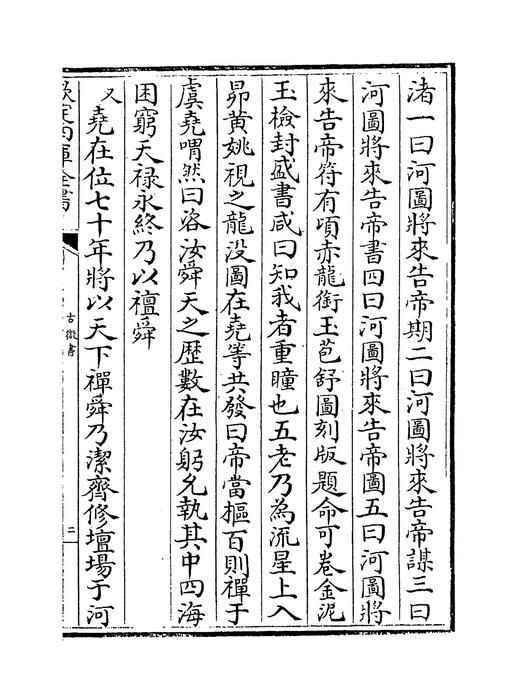 渚一曰河圖將來告帝期二曰河圖將來告帝謀三曰
河圖將來告帝書四曰河圖將來告帝圖五曰河圖將
來告帝符有頃赤龍銜玉苞舒圖刻版題命可卷金泥
玉檢封盛書咸曰知我者重瞳也五老乃為流星上入
昴黄姚視之龍没圖在堯等共發曰帝當樞百則禪于
虞堯喟然曰咨汝舜天之歴數在汝躬允執其中四海
困窮天禄永終乃以禪舜
又堯在位七十年將以天下禪舜乃潔齊修壇場于河
古微書
二